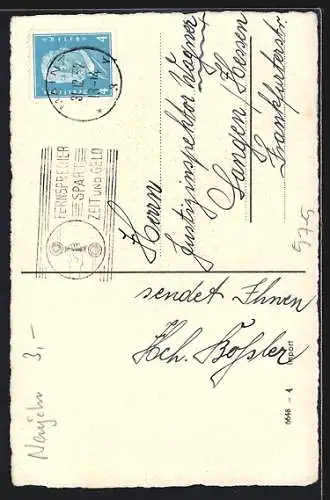 FERNSPRECHER
SPART
ZEIT UND GELD
4 4
Herrn
Justizinspektor Wagner
Langen/Hessen
Frankfurterstr.
sendet Ihnen
Hch. Boßler
Import
6648 - 4
975
Neujahr 3,-